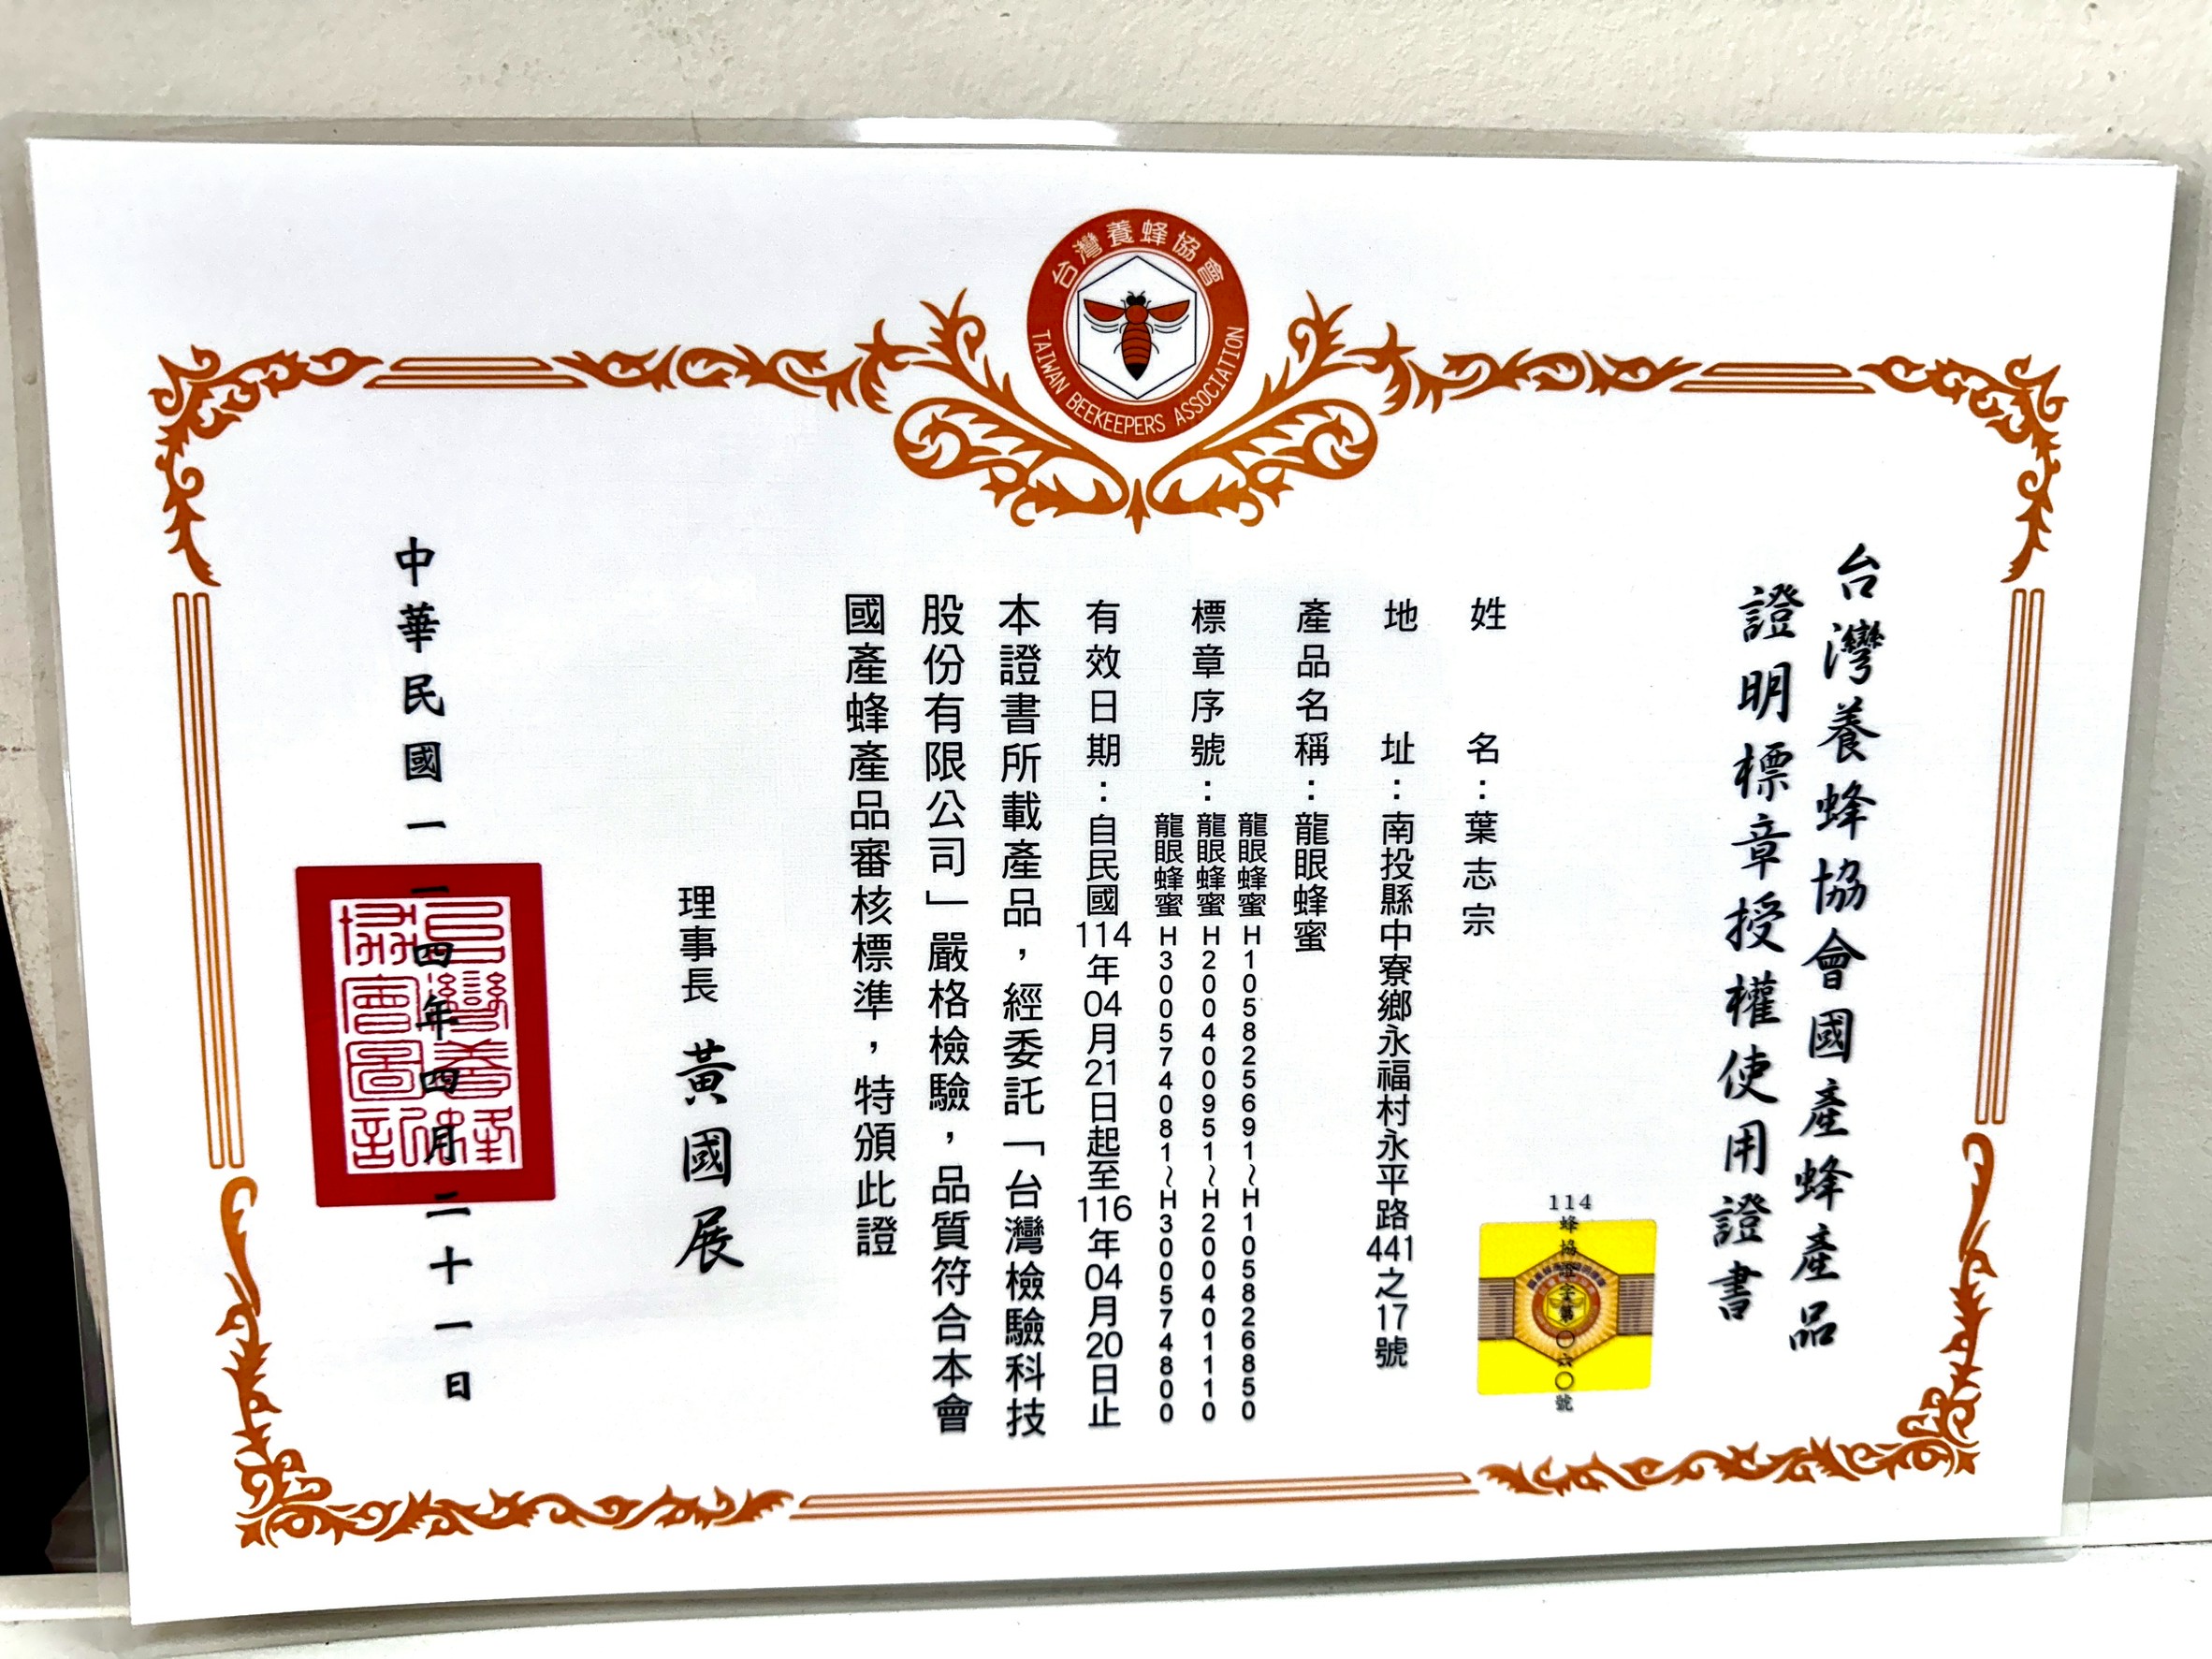 台灣養蜂協會
TAIWAN BEEKEEPERS ASSOCIATION
台灣養蜂協會國產蜂產品
證明標章授權使用證書
114蜂協證字第〇六〇號
姓名：葉志宗
地址：南投縣中寮鄉永福村永平路441之17號
產品名稱：龍眼蜂蜜
標章序號：龍眼蜂蜜H105825691~H105826850
龍眼蜂蜜H200400951~H200401110
龍眼蜂蜜H300574081~H300574800
有效日期：自民國114年04月21日起至116年04月20日止
本證書所載產品，經委託「台灣檢驗科技
股份有限公司」嚴格檢驗，品質符合本會
國產蜂產品審核標準，特頒此證
理事長 黃國展
中華民國一一四年四月二十一日
台灣養蜂
協會圖記